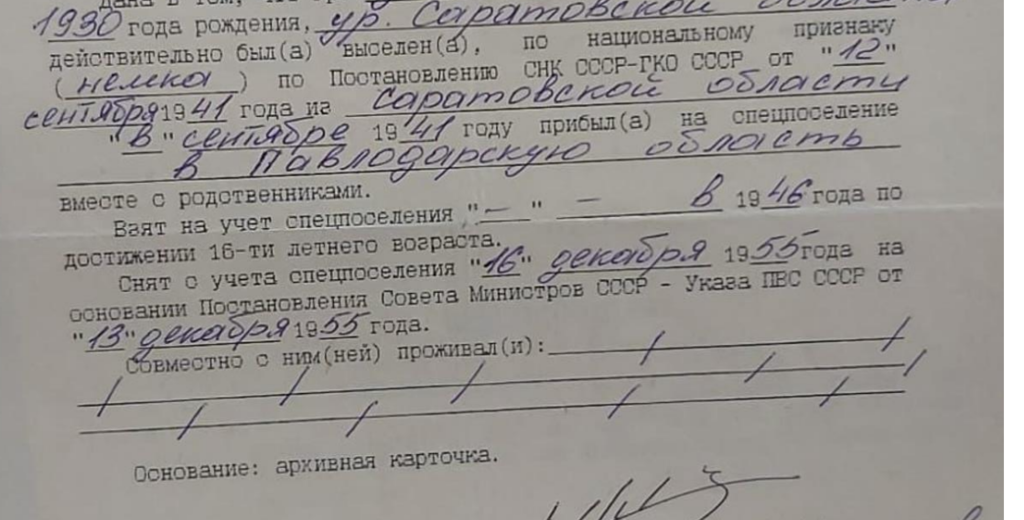 дана в том, что
1930 года рождения, ур. Саратовской области,
действительно был(а) выселен(а), по национальному признаку
( немка ) по Постановлению СНК СССР-ГКО СССР от "12"
сентября 1941 года из Саратовской области
"В" сентябре 1941 году прибыл(а) на спецпоселение
в Павлодарскую область
вместе с родственниками.
Взят на учет спецпоселения "—" — в 1946 года по
достижении 16-ти летнего возраста.
Снят с учета спецпоселения "16" декабря 1955 года на
основании Постановления Совета Министров СССР - Указа ПВС СССР от
"13" декабря 1955 года.
Совместно с ним(ней) проживал(и):
Основание: архивная карточка.